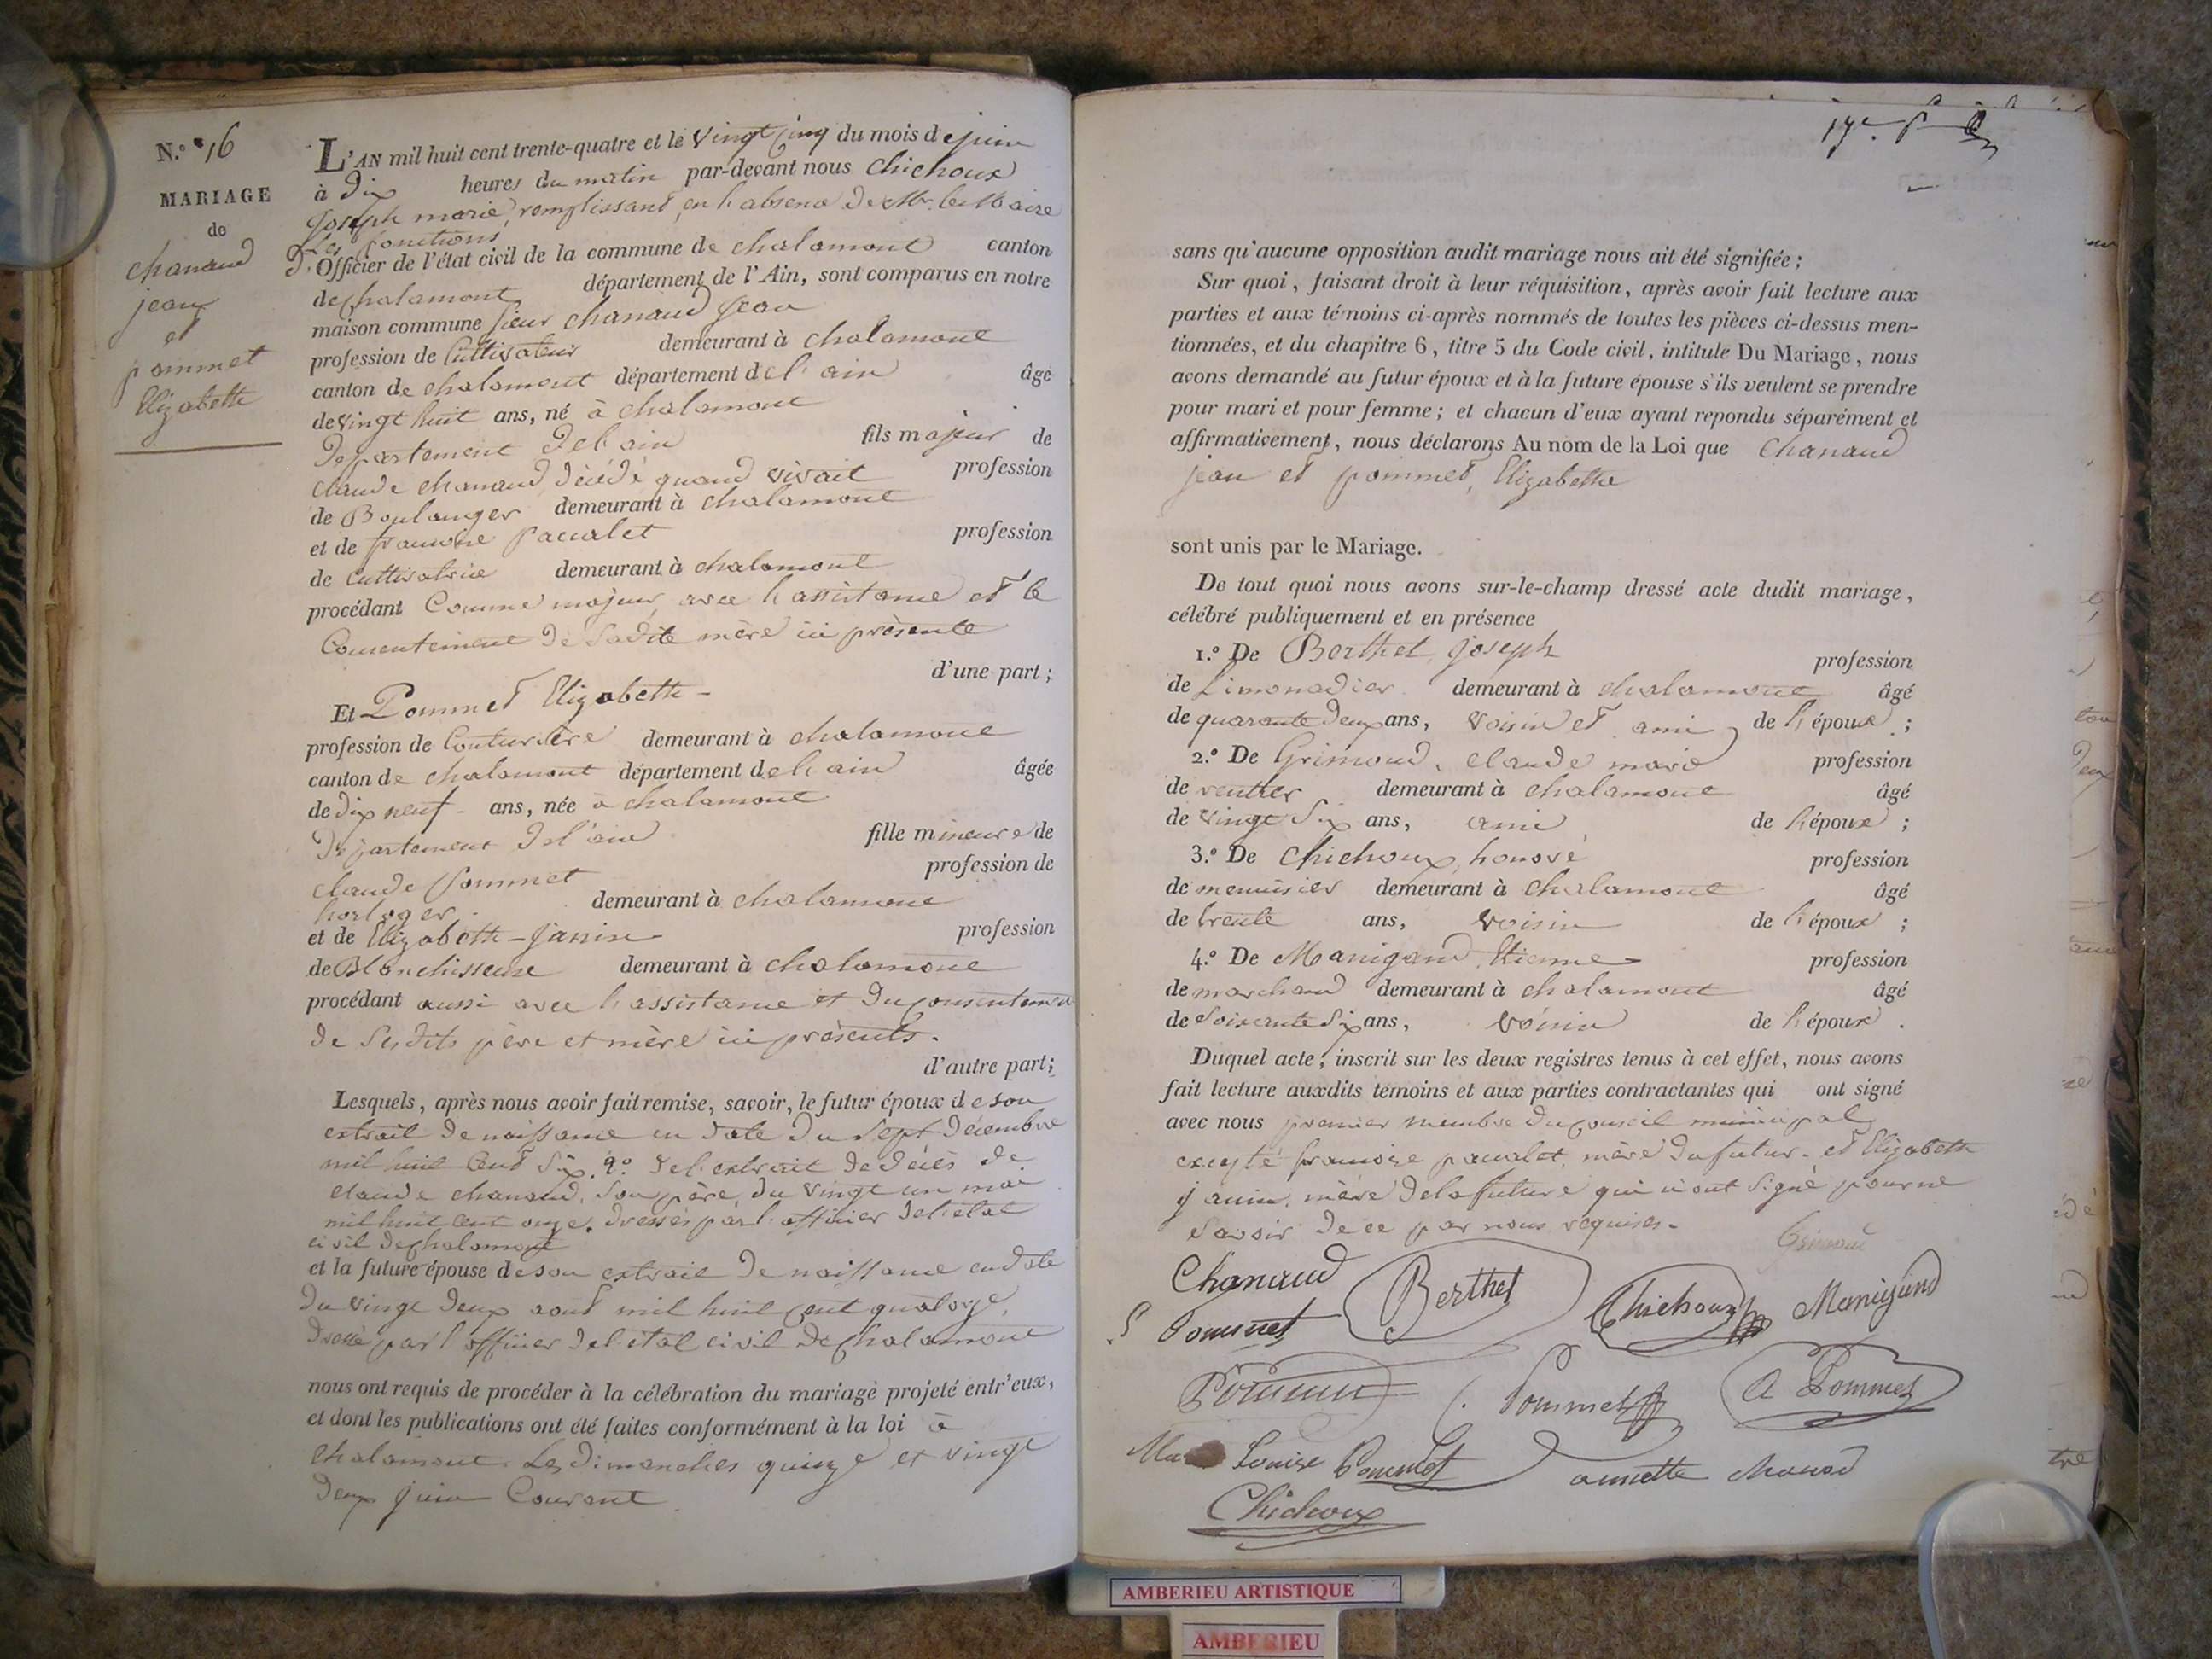 N.º 16
MARIAGE
de
chanaud
jean
et
pommet
Elizabeth
L'AN mil huit cent trente-quatre et le vingt cinq du mois de juin
à dix heures du matin par-devant nous Chichoux
joseph marie, remplissant, en l'absence de Mr. le Maire
Les fonctions
d'Officier de l'état civil de la commune de chalamont canton
de chalamont département de l'Ain, sont comparus en notre
maison commune sieur chanaud jean
profession de Cultivateur demeurant à chalamont
canton de chalamont département de l'ain âgé
de vingt huit ans, né à chalamont
Departement de l'ain fils majeur de
claude chanaud, décédé quand vivait profession
de Boulanger demeurant à chalamont
et de francoise pacualet profession
de cultivatrice demeurant à chalamont
procédant Comme majeur, avec l'assistance et le
Consentement de sadite mère ici présente
d'une part ;
Et Pommet Elizabeth -
profession de Couturière demeurant à chalamont
canton de chalamont département de l'ain âgée
de dix neuf - ans, née à chalamont
Departement de l'ain fille mineure de
claude pommet profession de
horloger demeurant à chalamont
et de Elizabeth - janin profession
de Blanchisseuse demeurant à chalamont
procédant aussi avec l'assistance et du consentement
de sesdits père et mère ici présents.
d'autre part ;
Lesquels, après nous avoir fait remise, savoir, le futur époux de son
extrait de naissance en date du sept decembre
mil huit cent six. 2.º de l'extrait de décès de
claude chanaud, son père, du vingt un mai
mil huit cent onze. dressés par l'officier de l'état
civil de chalamont
et la future épouse de son extrait de naissance en date
du vingt deux aout mil huit cent quatorze,
dressé par l'officier de l'etat civil de chalamont
nous ont requis de procéder à la célébration du mariage projeté entr'eux,
et dont les publications ont été faites conformément à la loi à
chalamont. Les dimanches quinze et vingt
deux juin Courant
sans qu'aucune opposition audit mariage nous ait été signifiée ;
Sur quoi, faisant droit à leur réquisition, après avoir fait lecture aux
parties et aux témoins ci-après nommés de toutes les pièces ci-dessus men-
tionnées, et du chapitre 6, titre 5 du Code civil, intitulé Du Mariage, nous
avons demandé au futur époux et à la future épouse s'ils veulent se prendre
pour mari et pour femme ; et chacun d'eux ayant repondu séparément et
affirmativement, nous déclarons Au nom de la Loi que Chanaud
jean et pommet, Elizabeth
sont unis par le Mariage.
De tout quoi nous avons sur-le-champ dressé acte dudit mariage,
célébré publiquement et en présence
1.º De Berthet, joseph profession
de Limonadier demeurant à chalamont âgé
de quarante deux ans, voisin et ami de l'époux ;
2.º De Grimoud, claude marie profession
de rentier demeurant à chalamont âgé
de vingt six ans, ami de l'époux ;
3.º De Chichoux, honoré profession
de menuisier demeurant à chalamont âgé
de trente ans, voisin de l'époux ;
4.º De Manigand, Etienne profession
de marchand demeurant à chalamont âgé
de soixante six ans, voisin de l'époux .
Duquel acte, inscrit sur les deux registres tenus à cet effet, nous avons
fait lecture auxdits témoins et aux parties contractantes qui ont signé
avec nous premier membre du conseil municipal
excepté francoise pacualet, mère du futur. et Elizabeth
janin, mère de la future qui n'ont signé pour ne
savoir de ce par nous requises.
Grimoud
Chanaud Berthet Chichoux Manigand
Pommet
Pommet A Pommet
Louise Pommet annette chanad
Chichoux
AMBERIEU ARTISTIQUE
AMBERIEU